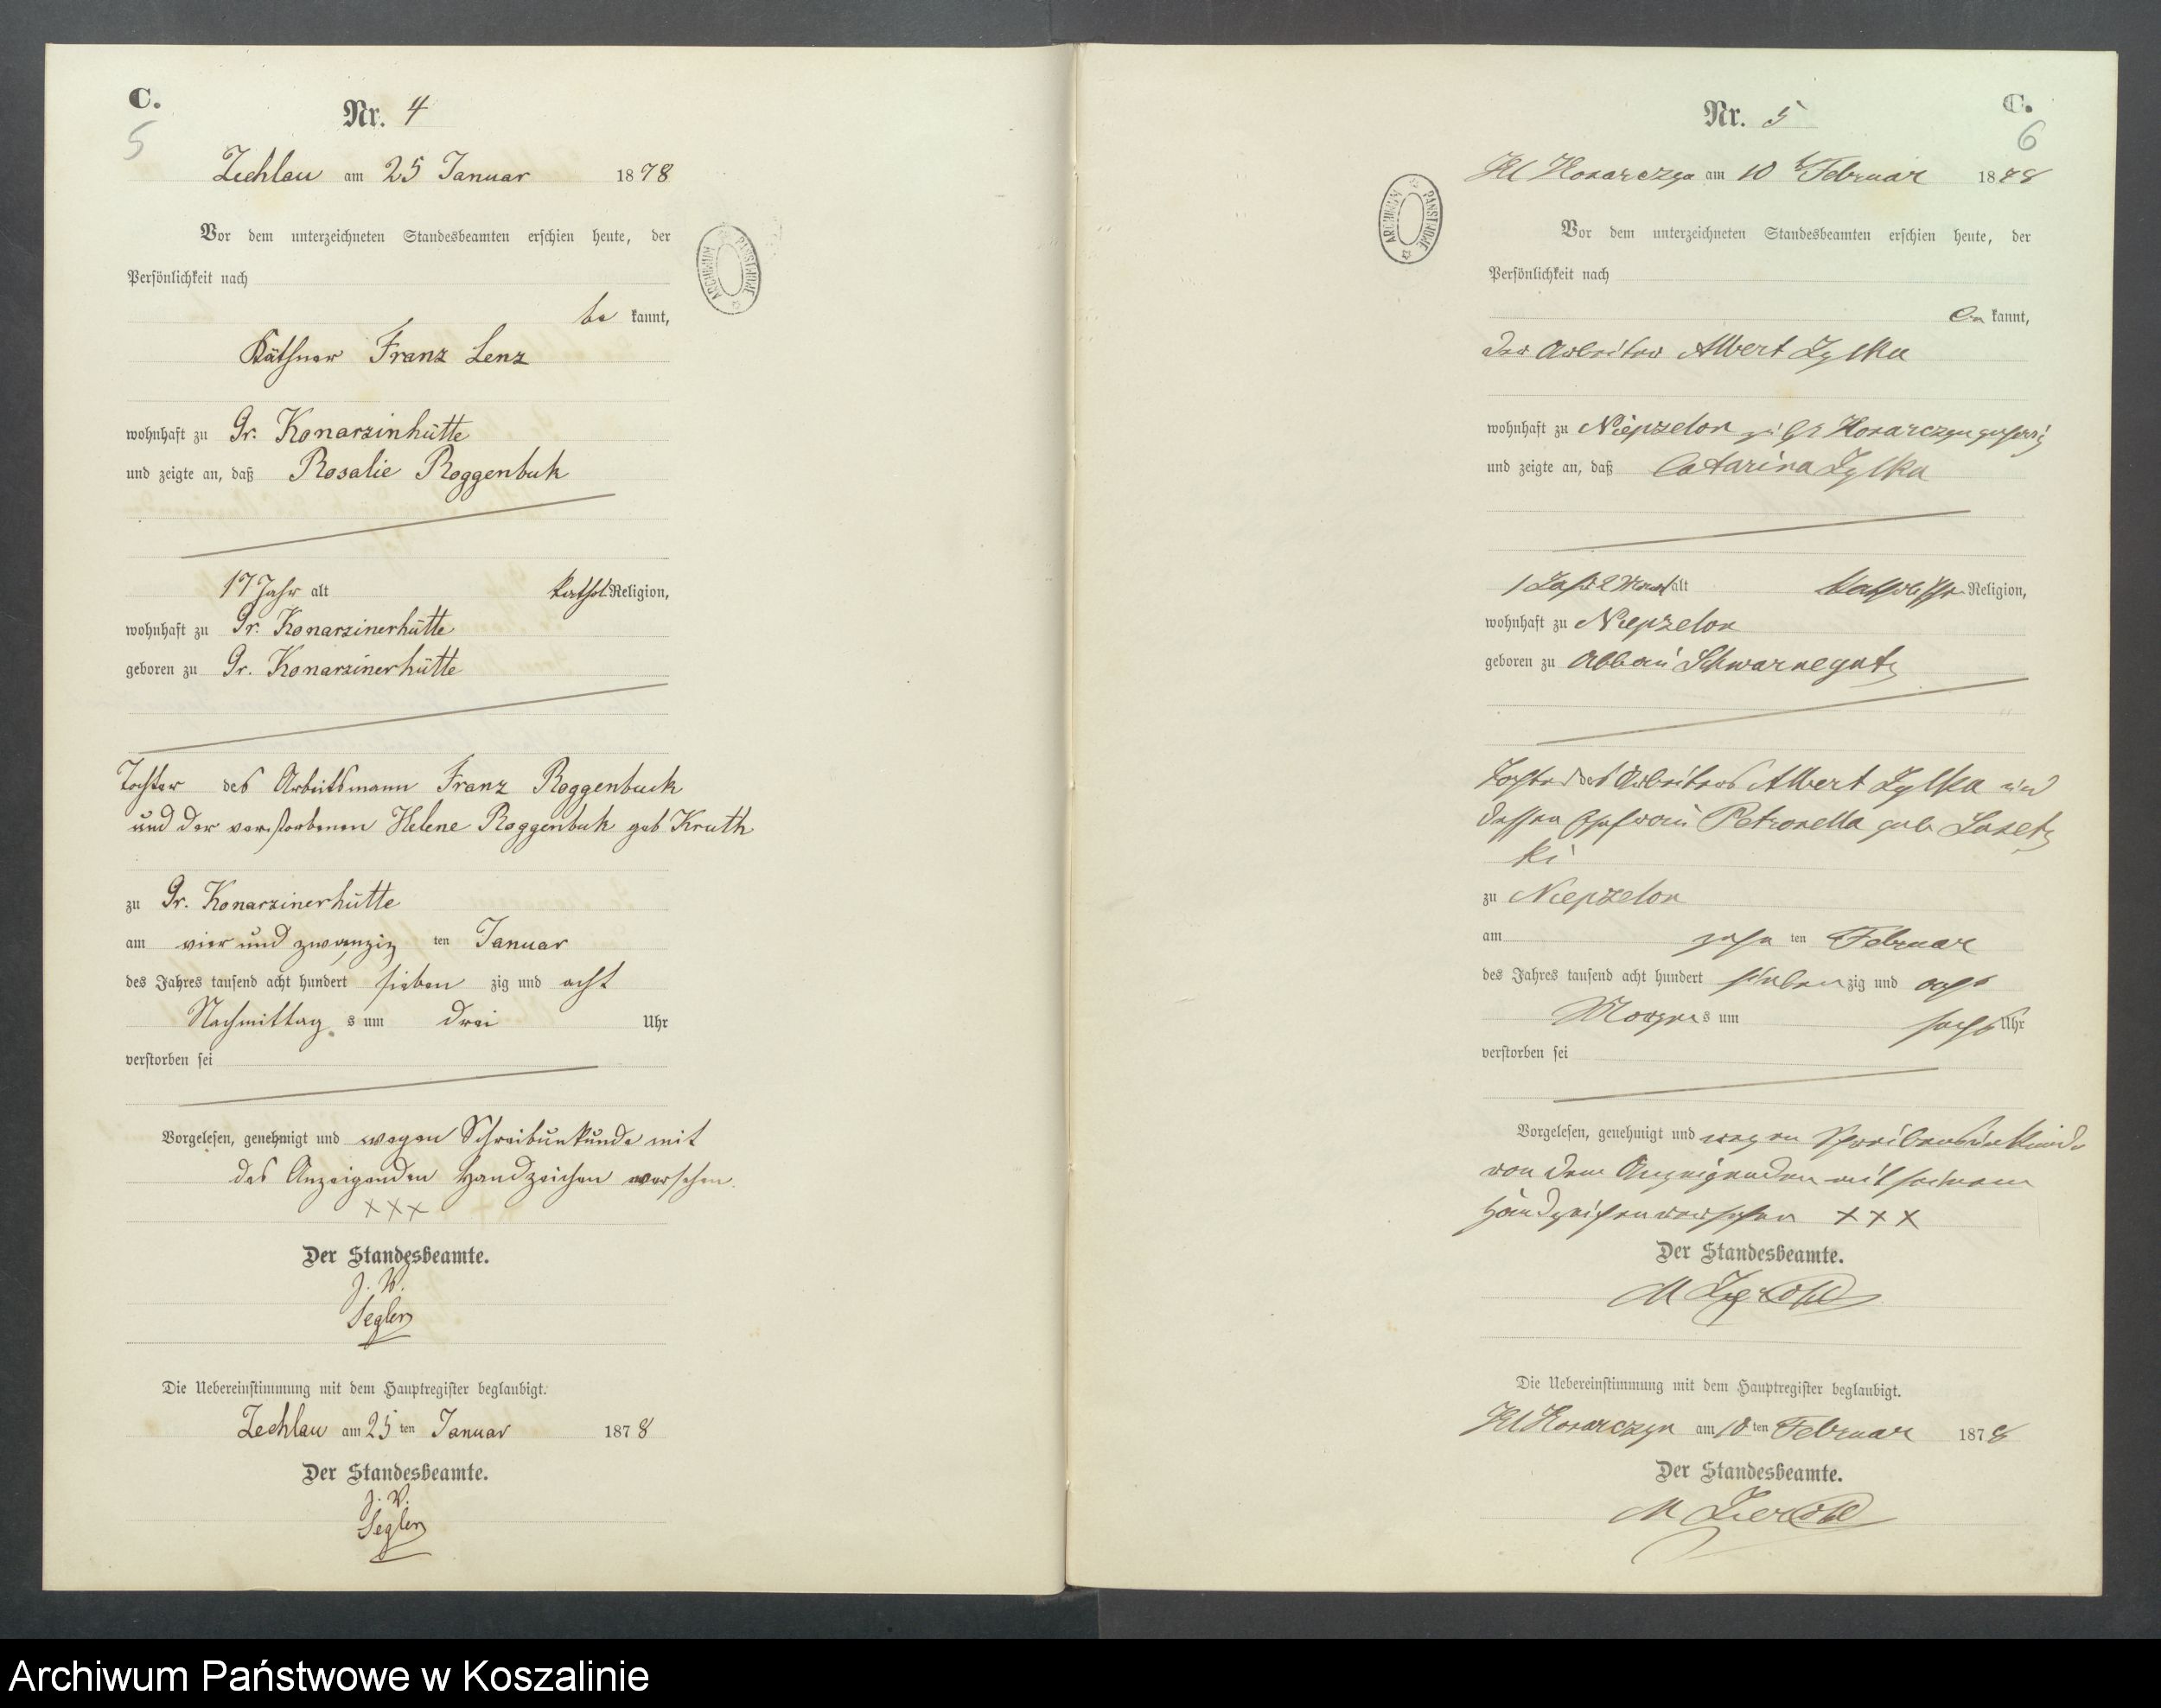 C.
5
Nr. 4
Zechlau am 25 Januar 1878
Vor dem unterzeichneten Standesbeamten erschien heute, der
Persönlichkeit nach
be kannt,
Käthner Franz Lenz
wohnhaft zu Gr. Konarzinhütte
und zeigte an, daß Rosalie Roggenbuk
17 Jahr alt kathol. Religion,
wohnhaft zu Gr. Konarzinerhütte
geboren zu Gr. Konarzinerhütte
Tochter des Arbeitsmann Franz Roggenbuck
und der verstorbenen Helene Roggenbuk geb Kruth
zu Gr. Konarzinerhütte
am vier und zwanzig ten Januar
des Jahres tausend acht hundert sieben zig und acht
Nachmittag s um drei Uhr
verstorben sei
Vorgelesen, genehmigt und wegen Schreibunkunde mit
des Anzeigenden Handzeichen versehen.
XXX
Der Standesbeamte.
J. V.
Segler
Die Uebereinstimmung mit dem Hauptregister beglaubigt.
Zechlau am 25 ten Januar 1878
Der Standesbeamte.
J. V.
Segler
ARCHIWUM PAŃSTWOWE
C.
6
Nr. 5
Kl Konarczyn am 10 t Februar 1878
Vor dem unterzeichneten Standesbeamten erschien heute, der
Persönlichkeit nach
be kannt,
der Arbeiter Albert Zylka
wohnhaft zu Niepzelon zu Gr Konarczyn gehörig
und zeigte an, daß Catarina Zylka
1 Jahr 2 Monat alt katholischer Religion,
wohnhaft zu Niepzelon
geboren zu Abbau Schwarnegatz
Tochter des Arbeiters Albert Zylka und
dessen Ehefrau Petronella geb
ki
zu Niepzelon
am zehn ten Februar
des Jahres tausend acht hundert sieben zig und acht
Morgen s um sechs Uhr
verstorben sei
Vorgelesen, genehmigt und wegen Schreibensunkunde
von dem Anzeigenden mit seinem
Handzeichen versehen XXX
Der Standesbeamte.
M
Die Uebereinstimmung mit dem Hauptregister beglaubigt.
Kl Konarczyn am 10 ten Februar 1878
Der Standesbeamte.
M
ARCHIWUM PAŃSTWOWE
Archiwum Państwowe w Koszalinie